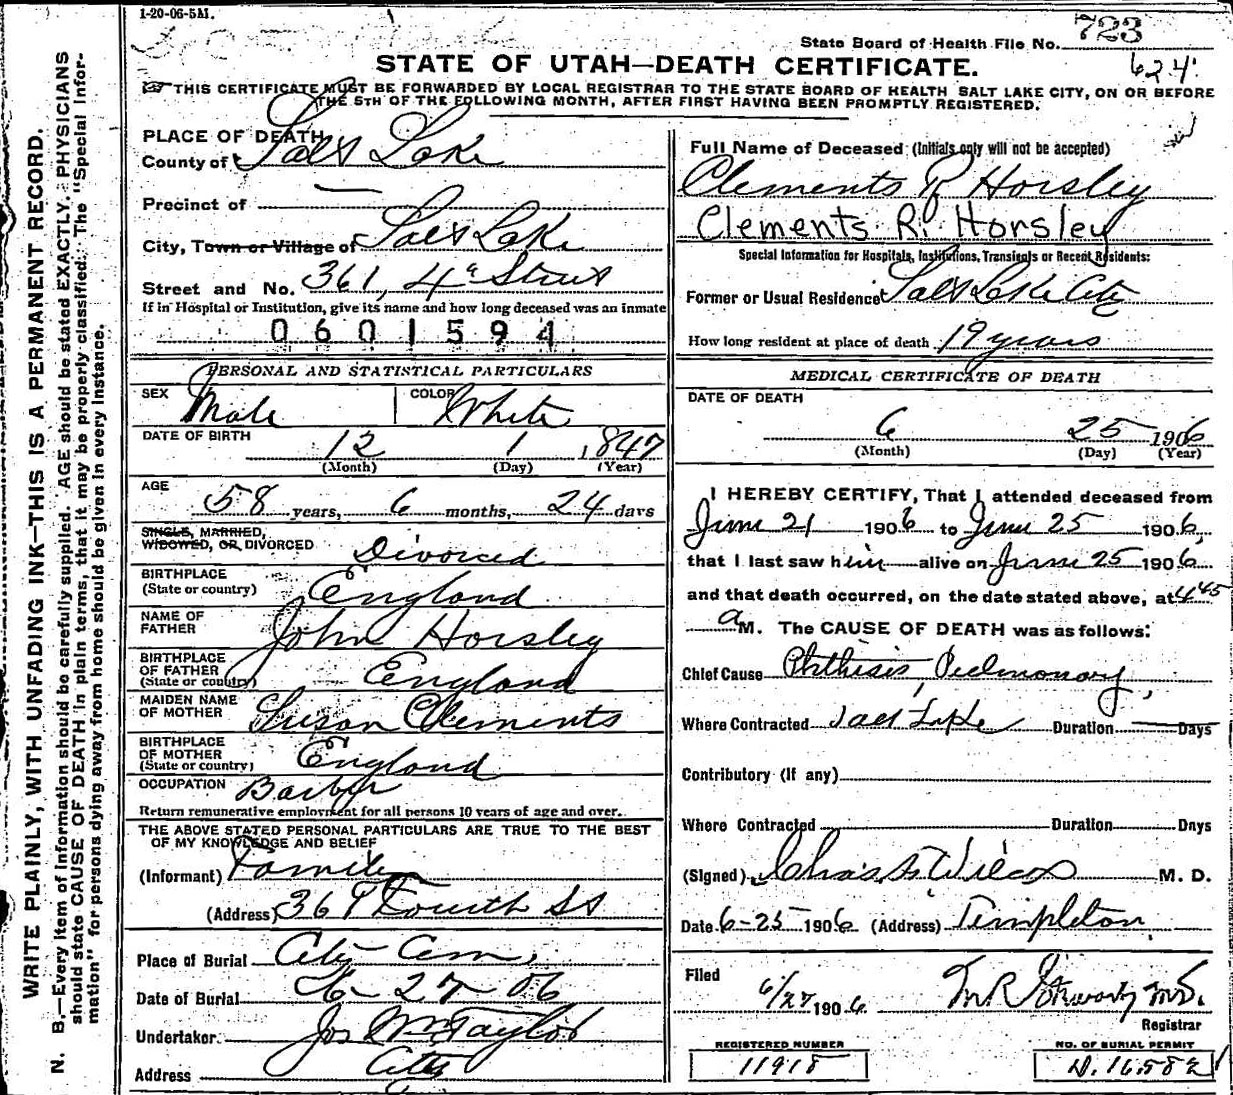 1-20-06-5M.
State Board of Health File No. 723
624
STATE OF UTAH—DEATH CERTIFICATE.
THIS CERTIFICATE MUST BE FORWARDED BY LOCAL REGISTRAR TO THE STATE BOARD OF HEALTH SALT LAKE CITY, ON OR BEFORE
THE 5TH OF THE FOLLOWING MONTH, AFTER FIRST HAVING BEEN PROMPTLY REGISTERED.
WRITE PLAINLY, WITH UNFADING INK—THIS IS A PERMANENT RECORD.
N. B.—Every item of information should be carefully supplied. AGE should be stated EXACTLY. PHYSICIANS
should state CAUSE OF DEATH in plain terms, that it may be properly classified. The "Special Infor-
mation" for persons dying away from home should be given in every instance.
PLACE OF DEATH
County of Salt Lake
Precinct of —
City, Town or Village of Salt Lake
Street and No. 361, 4th Street
If in Hospital or Institution, give its name and how long deceased was an inmate
0601594
PERSONAL AND STATISTICAL PARTICULARS
SEX Male COLOR White
DATE OF BIRTH 12 1 1847
(Month) (Day) (Year)
AGE 58 years, 6 months, 24 days
SINGLE, MARRIED,
WIDOWED, OR DIVORCED Divorced
BIRTHPLACE
(State or country) England
NAME OF
FATHER John Horsley
BIRTHPLACE
OF FATHER
(State or country) England
MAIDEN NAME
OF MOTHER Susan Clements
BIRTHPLACE
OF MOTHER
(State or country) England
OCCUPATION Barber
Return remunerative employment for all persons 10 years of age and over.
THE ABOVE STATED PERSONAL PARTICULARS ARE TRUE TO THE BEST
OF MY KNOWLEDGE AND BELIEF
(Informant) Family
(Address) 361 Fourth St
Place of Burial City Cem,
Date of Burial 6-27-06
Undertaker Jos Wm Taylor
Address City
Full Name of Deceased (Initials only will not be accepted)
Clements R Horsley
Clements R. Horsley
Special Information for Hospitals, Institutions, Transients or Recent Residents:
Former or Usual Residence Salt Lake City
How long resident at place of death 19 years
MEDICAL CERTIFICATE OF DEATH
DATE OF DEATH
6 25 1906
(Month) (Day) (Year)
I HEREBY CERTIFY, That I attended deceased from
June 21 1906 to June 25 1906,
that I last saw him alive on June 25 1906,
and that death occurred, on the date stated above, at 4 45
a M. The CAUSE OF DEATH was as follows:
Chief Cause Phthisis, Pulmonary,
Where Contracted Salt Lake Duration — Days
Contributory (If any)
Where Contracted Duration Days
(Signed) Chas. Wilcox M. D.
Date 6-25 1906 (Address) Templeton
Filed 6/27 1906 M R M.D.
Registrar
REGISTERED NUMBER
11918
NO. OF BURIAL PERMIT
D. 16582